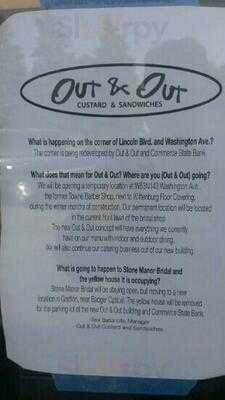 Out & Out
CUSTARD & SANDWICHES
What is happening on the corner of Lincoln Blvd. and Washington Ave.?
The corner is being redeveloped by Out & Out and Commerce State Bank.
What does that mean for Out & Out? Where are you (Out & Out) going?
We will be opening a temporary location at Washington Ave.,
the former Towne Barber Shop, next to Wittenburg Floor Covering,
during the winter months of construction. Our permanent location will be located
in the current front lawn of the bridal shop.
The new Out & Out concept will have everything we currently
have on our menu with indoor and outdoor dining.
We will also continue our catering business out of our new building.
What is going to happen to Stone Manor Bridal and
the yellow house it is occupying?
Stone Manor Bridal will be staying open, but moving to a new
location in Grafton, near Badger Optical. The yellow house will be removed
for the parking lot of the new Out & Out building and Commerce State Bank.
Manager
Out & Out Custard and Sandwiches